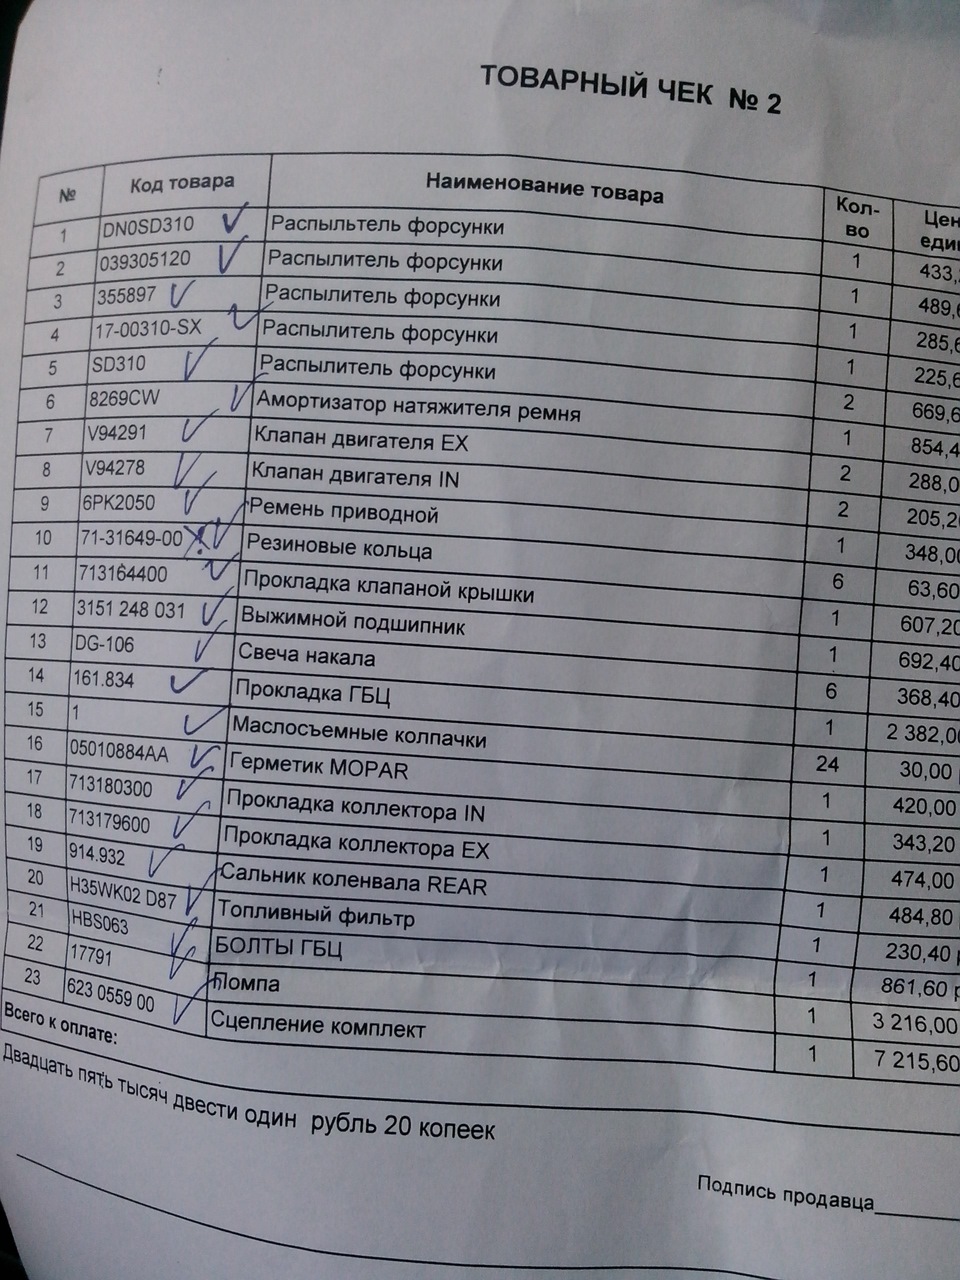 ТОВАРНЫЙ ЧЕК № 2
№ Код товара Наименование товара Кол-во Цен еди
1 DN0SD310 Распыльтель форсунки 1 433,
2 039305120 Распылитель форсунки 1 489,6
3 355897 Распылитель форсунки 1 285,6
4 17-00310-SX Распылитель форсунки 1 225,6
5 SD310 Распылитель форсунки 2 669,6
6 8269CW Амортизатор натяжителя ремня 1 854,4
7 V94291 Клапан двигателя EX 2 288,0
8 V94278 Клапан двигателя IN 2 205,20
9 6PK2050 Ремень приводной 1 348,00
10 71-31649-00 Резиновые кольца 6 63,60
11 713164400 Прокладка клапаной крышки 1 607,20
12 3151 248 031 Выжимной подшипник 1 692,40
13 DG-106 Свеча накала 6 368,40
14 161.834 Прокладка ГБЦ 1 2 382,00
15 1 Маслосъемные колпачки 24 30,00
16 05010884AA Герметик MOPAR 1 420,00
17 713180300 Прокладка коллектора IN 1 343,20
18 713179600 Прокладка коллектора EX 1 474,00
19 914.932 Сальник коленвала REAR 1 484,80
20 H35WK02 D87 Топливный фильтр 1 230,40 р
21 HBS063 БОЛТЫ ГБЦ 1 861,60 р
22 17791 Помпа 1 3 216,00
23 623 0559 00 Сцепление комплект 1 7 215,60
Всего к оплате:
Двадцать пять тысяч двести один рубль 20 копеек
Подпись продавца